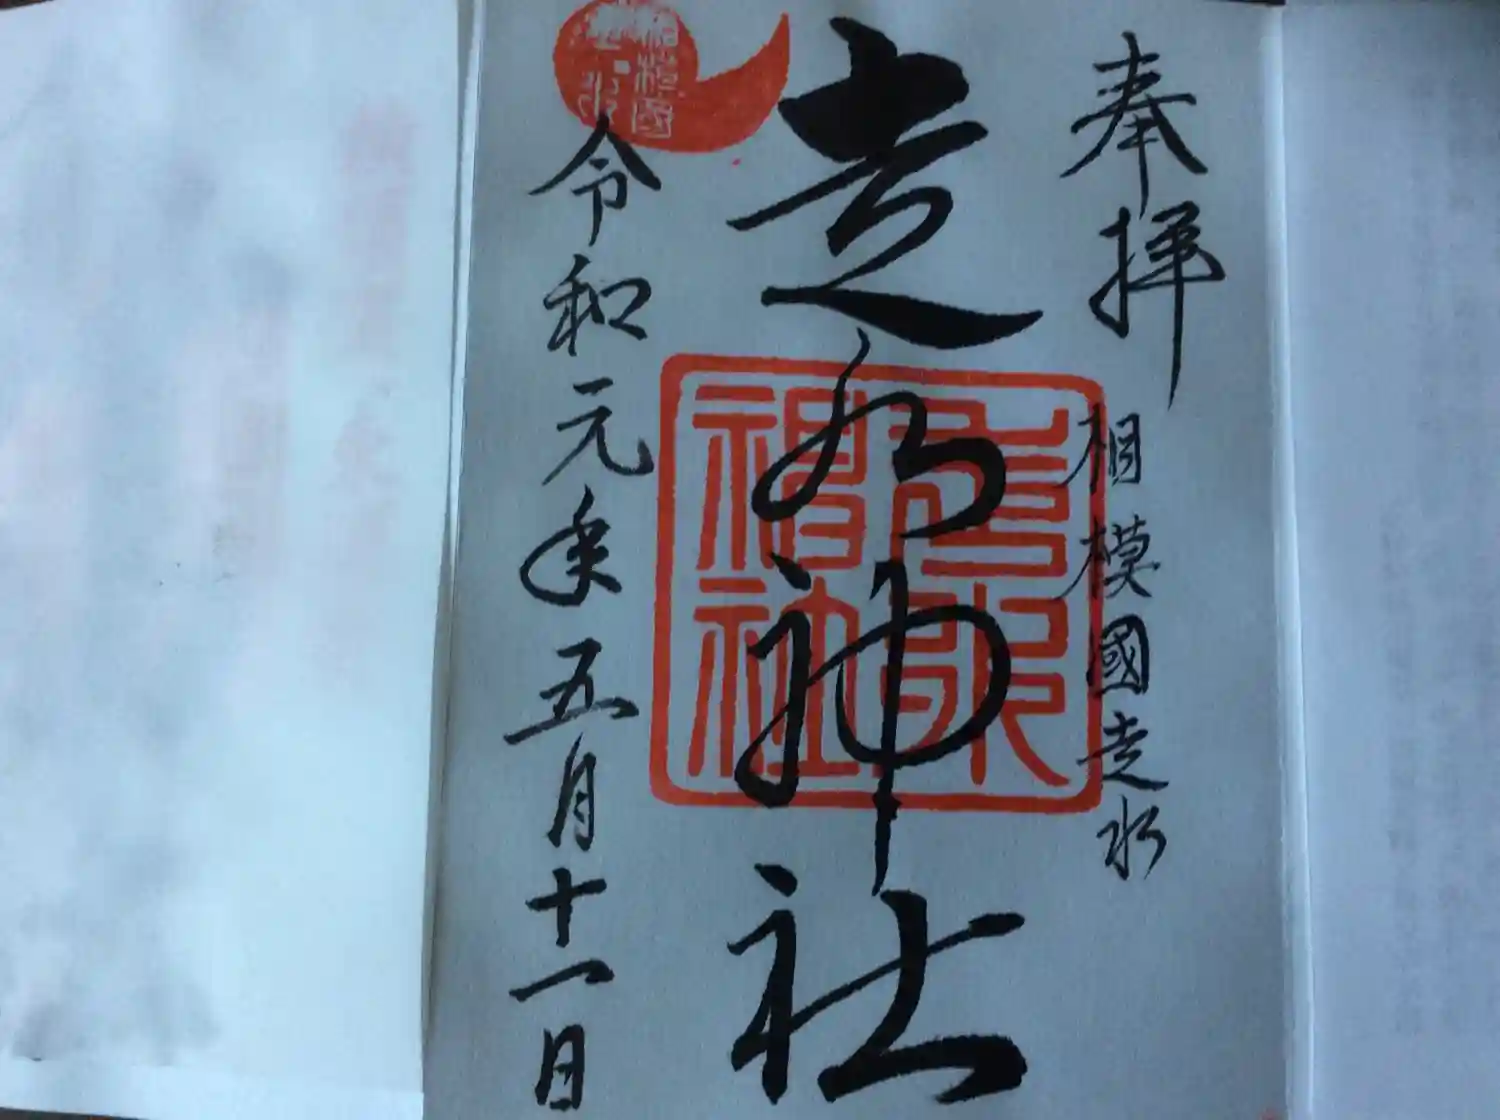 奉拝
相模國走水
走水神社
走水神社
令和元年五月十一日
相模國
走水